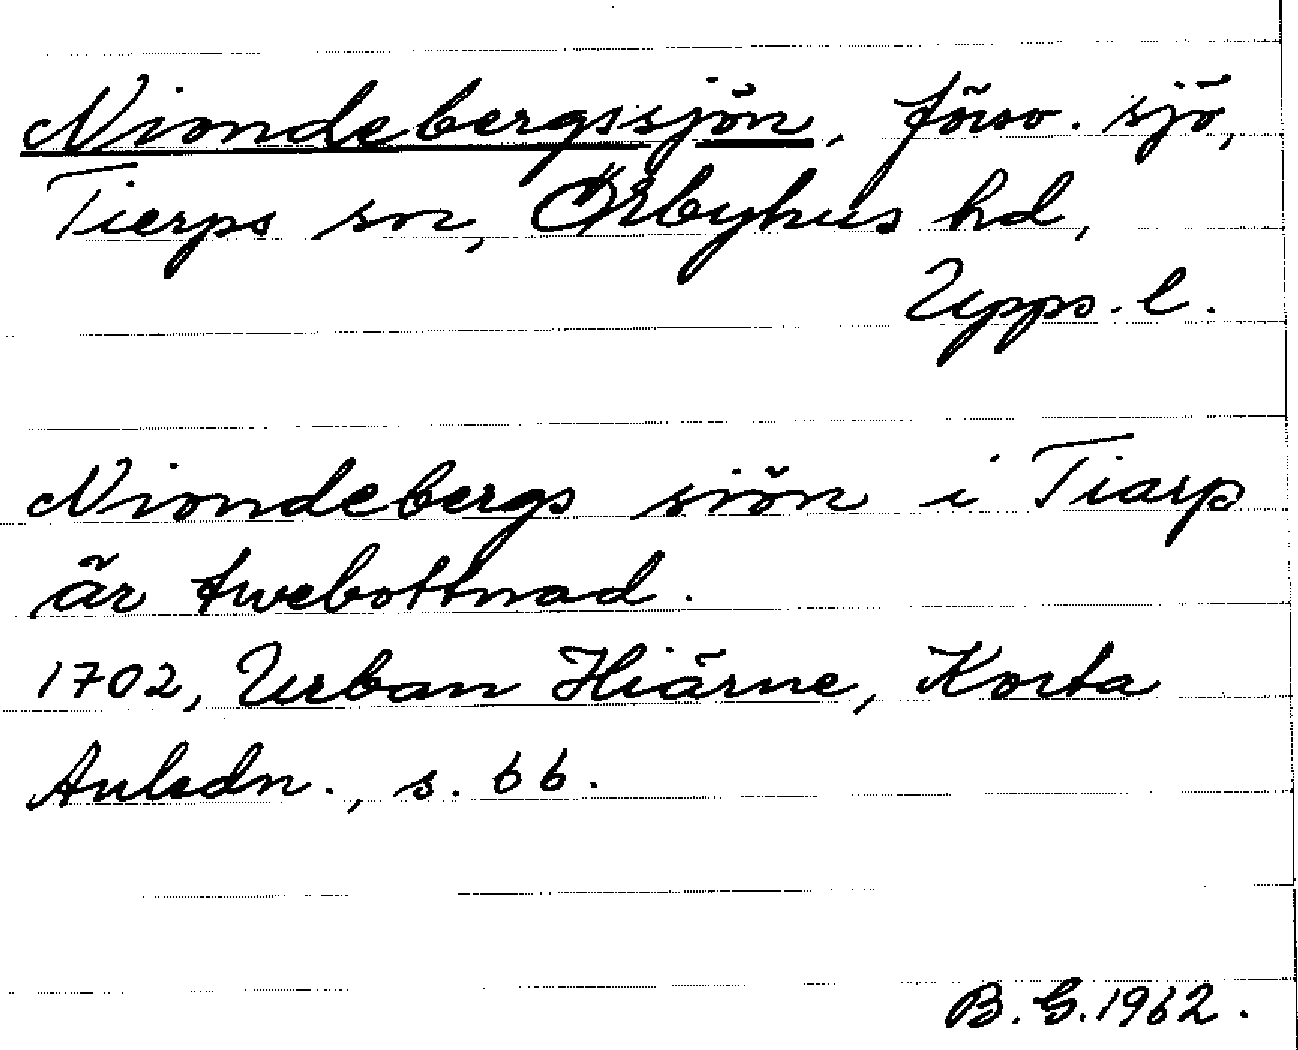 Niondebergssjön, försv. sjö,
Tierps sn, Örbyhus hd,
Upps. l.
Niondebergs siön i Tiarp
är twebottnad.
1702, Urban Hiärne, Korta
Anledn., s. 66.
B. G. 1962.